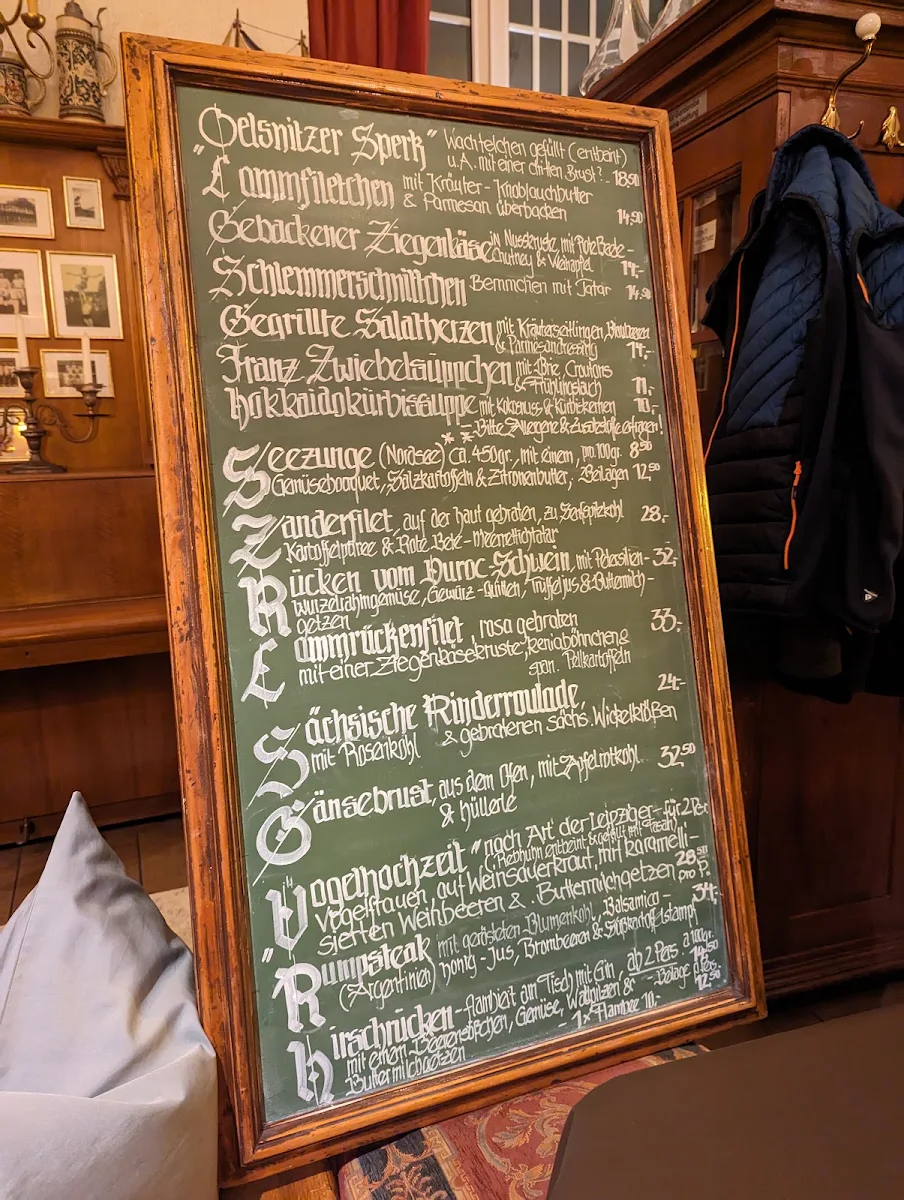 Oelsnitzer Sperk" Wachtelchen gefüllt (entbeint)
u. A. mit einer dritten Brust?.. 18,50
"Lammfiletchen mit Kräuter - Knoblauchbutter
& Parmesan überbacken 14,50
Gebackener Ziegenkäse in Nusskruste, mit Rote Bede -
Chutney & Weinapfel 14,-
Schlemmerschnittchen Bemmchen mit Tatar 14,50
Gegrillte Salatherzen mit Kräuterseitlingen, Blaubeeren
& Parmesandressing 14,-
Franz. Zwiebelsüppchen mit Brie, Croutons
& Frühlingslauch 11,-
Hokkaidokürbissuppe mit Kokosnuss & Kürbiskernen 10,-
- Bitte Allergene & Zusatzstoffe erfragen!
Seezunge (Nordsee) ca. 450gr., mit einem, pro 100gr. 8,50
Gemüsebouquet, Salzkartoffeln & Zitronenbutter, Beilagen 12,50
Zanderfilet, auf der Haut gebraten, zu Senfspitzkohl 28,-
Kartoffelpüree & Rote Bete - Meerrettichtatar
Rücken vom Duroc-Schwein, mit Petersilien- 32,-
wurzelrahmgemüse, Gewürz - Quitten, Trüffeljus & Buttermilch -
getzen
Lammrückenfilet, rosa gebraten 33,-
mit einer Ziegenkäsekruste, Keniaböhnchen &
span. Pellkartoffeln
Sächsische Rinderroulade, 24,-
mit Rosenkohl & gebratenen sächs. Wickelklößen
Gänsebrust, aus dem Ofen, mit Apfelrotkohl 32,50
& Hüllerle
"Vogelhochzeit" nach Art der Leipziger - für 2 Per.
(Rebhuhn entbeint & gefüllt mit Fasan)
Vogelfrauen auf Weinsauerkraut, mit karamelli-
sierten Weinbeeren & Buttermilchgetzen 28,50
pro P.
"Rumpsteak mit geröstetem Blumenkohl, Balsamico - 34,-
(Argentinien) Honig - Jus, Brombeeren & Süßkartoffelstampf
Hirschrücken - flambiert am Tisch mit Gin, ab 2 Pers. a 100gr.
mit einem Beerensößchen, Gemüse, Waldpilzen &
Buttermilchgetzen
12,50
1x Flambee 10,-